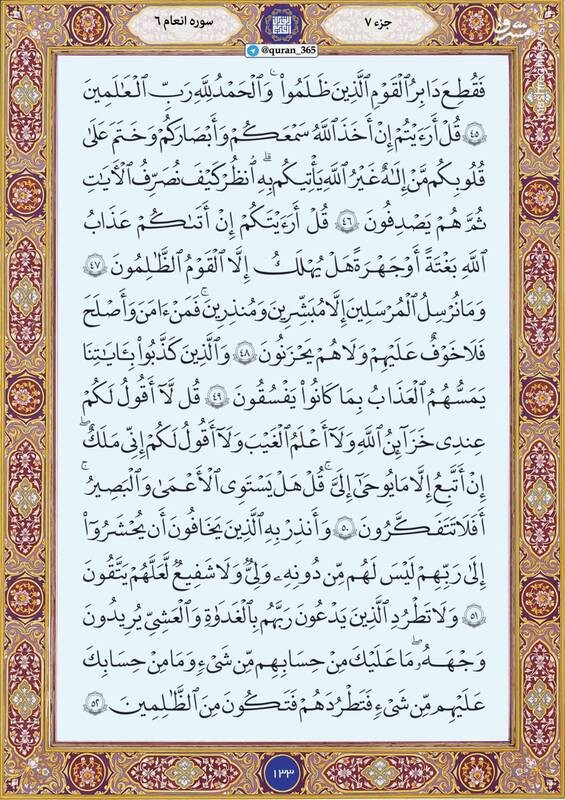 سوره انعام ۶
جزء ۷
@quran_365
مشرق
فَقُطِعَ دَابِرُ ٱلْقَوْمِ ٱلَّذِينَ ظَلَمُوا۟ ۚ وَٱلْحَمْدُ لِلَّهِ رَبِّ ٱلْعَـٰلَمِينَ
۴۵ قُلْ أَرَءَيْتُمْ إِنْ أَخَذَ ٱللَّهُ سَمْعَكُمْ وَأَبْصَـٰرَكُمْ وَخَتَمَ عَلَىٰ
قُلُوبِكُم مَّنْ إِلَـٰهٌ غَيْرُ ٱللَّهِ يَأْتِيكُم بِهِ ۗ ٱنظُرْ كَيْفَ نُصَرِّفُ ٱلْـَٔايَـٰتِ
ثُمَّ هُمْ يَصْدِفُونَ ۴۶ قُلْ أَرَءَيْتَكُمْ إِنْ أَتَىٰكُمْ عَذَابُ
ٱللَّهِ بَغْتَةً أَوْ جَهْرَةً هَلْ يُهْلَكُ إِلَّا ٱلْقَوْمُ ٱلظَّـٰلِمُونَ ۴۷
وَمَا نُرْسِلُ ٱلْمُرْسَلِينَ إِلَّا مُبَشِّرِينَ وَمُنذِرِينَ ۖ فَمَنْ ءَامَنَ وَأَصْلَحَ
فَلَا خَوْفٌ عَلَيْهِمْ وَلَا هُمْ يَحْزَنُونَ ۴۸ وَٱلَّذِينَ كَذَّبُوا۟ بِـَٔايَـٰتِنَا
يَمَسُّهُمُ ٱلْعَذَابُ بِمَا كَانُوا۟ يَفْسُقُونَ ۴۹ قُل لَّآ أَقُولُ لَكُمْ
عِندِى خَزَآئِنُ ٱللَّهِ وَلَآ أَعْلَمُ ٱلْغَيْبَ وَلَآ أَقُولُ لَكُمْ إِنِّى مَلَكٌ ۖ
إِنْ أَتَّبِعُ إِلَّا مَا يُوحَىٰٓ إِلَىَّ ۚ قُلْ هَلْ يَسْتَوِى ٱلْأَعْمَىٰ وَٱلْبَصِيرُ ۚ
أَفَلَا تَتَفَكَّرُونَ ۵۰ وَأَنذِرْ بِهِ ٱلَّذِينَ يَخَافُونَ أَن يُحْشَرُوٓا۟
إِلَىٰ رَبِّهِمْ ۙ لَيْسَ لَهُم مِّن دُونِهِۦ وَلِىٌّ وَلَا شَفِيعٌ لَّعَلَّهُمْ يَتَّقُونَ
۵۱ وَلَا تَطْرُدِ ٱلَّذِينَ يَدْعُونَ رَبَّهُم بِٱلْغَدَوٰةِ وَٱلْعَشِىِّ يُرِيدُونَ
وَجْهَهُۥ ۖ مَا عَلَيْكَ مِنْ حِسَابِهِم مِّن شَىْءٍ وَمَا مِنْ حِسَابِكَ
عَلَيْهِم مِّن شَىْءٍ فَتَطْرُدَهُمْ فَتَكُونَ مِنَ ٱلظَّـٰلِمِينَ ۵۲
۱۳۳